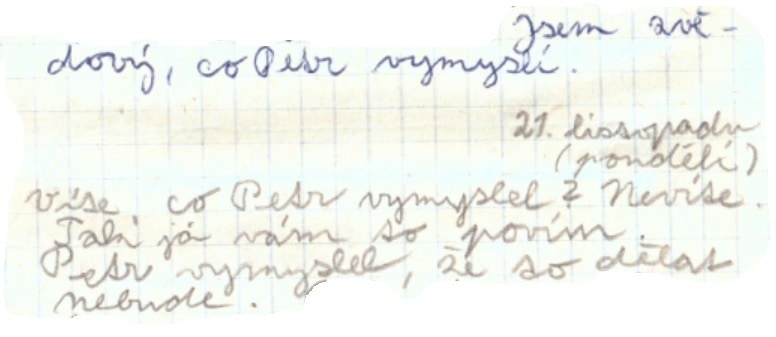 jsem zvě-
dový, co Petr vymyslí.
21. listopadu
(pondělí)
Víte co Petr vymyslel? Nevíte.
Tak já vám to povím.
Petr vymyslel, že to dělat
nebude.